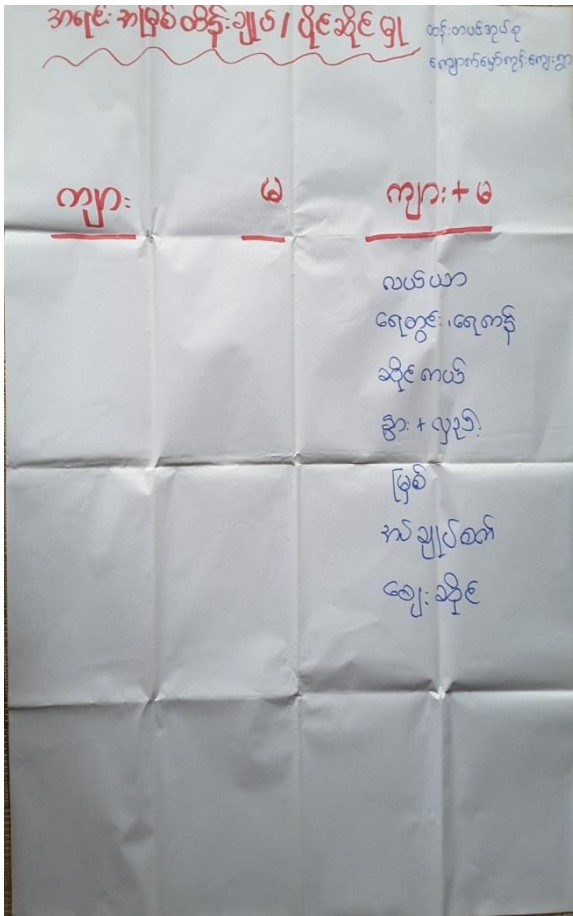 အရင်းအမြစ်ထိန်းချုပ်/ပိုင်ဆိုင်မှု
ထန်းတပင်အုပ်စု
ကျောက်မှော်ကုန်းကျေးရွာ
ကျား မ ကျား + မ
လယ်ယာ
ရေတွင်း၊ ရေကန်
ဆိုင်ကယ်
နွား + လှည်း
မြှစ်
အပ်ချုပ်စက်
ဈေးဆိုင်